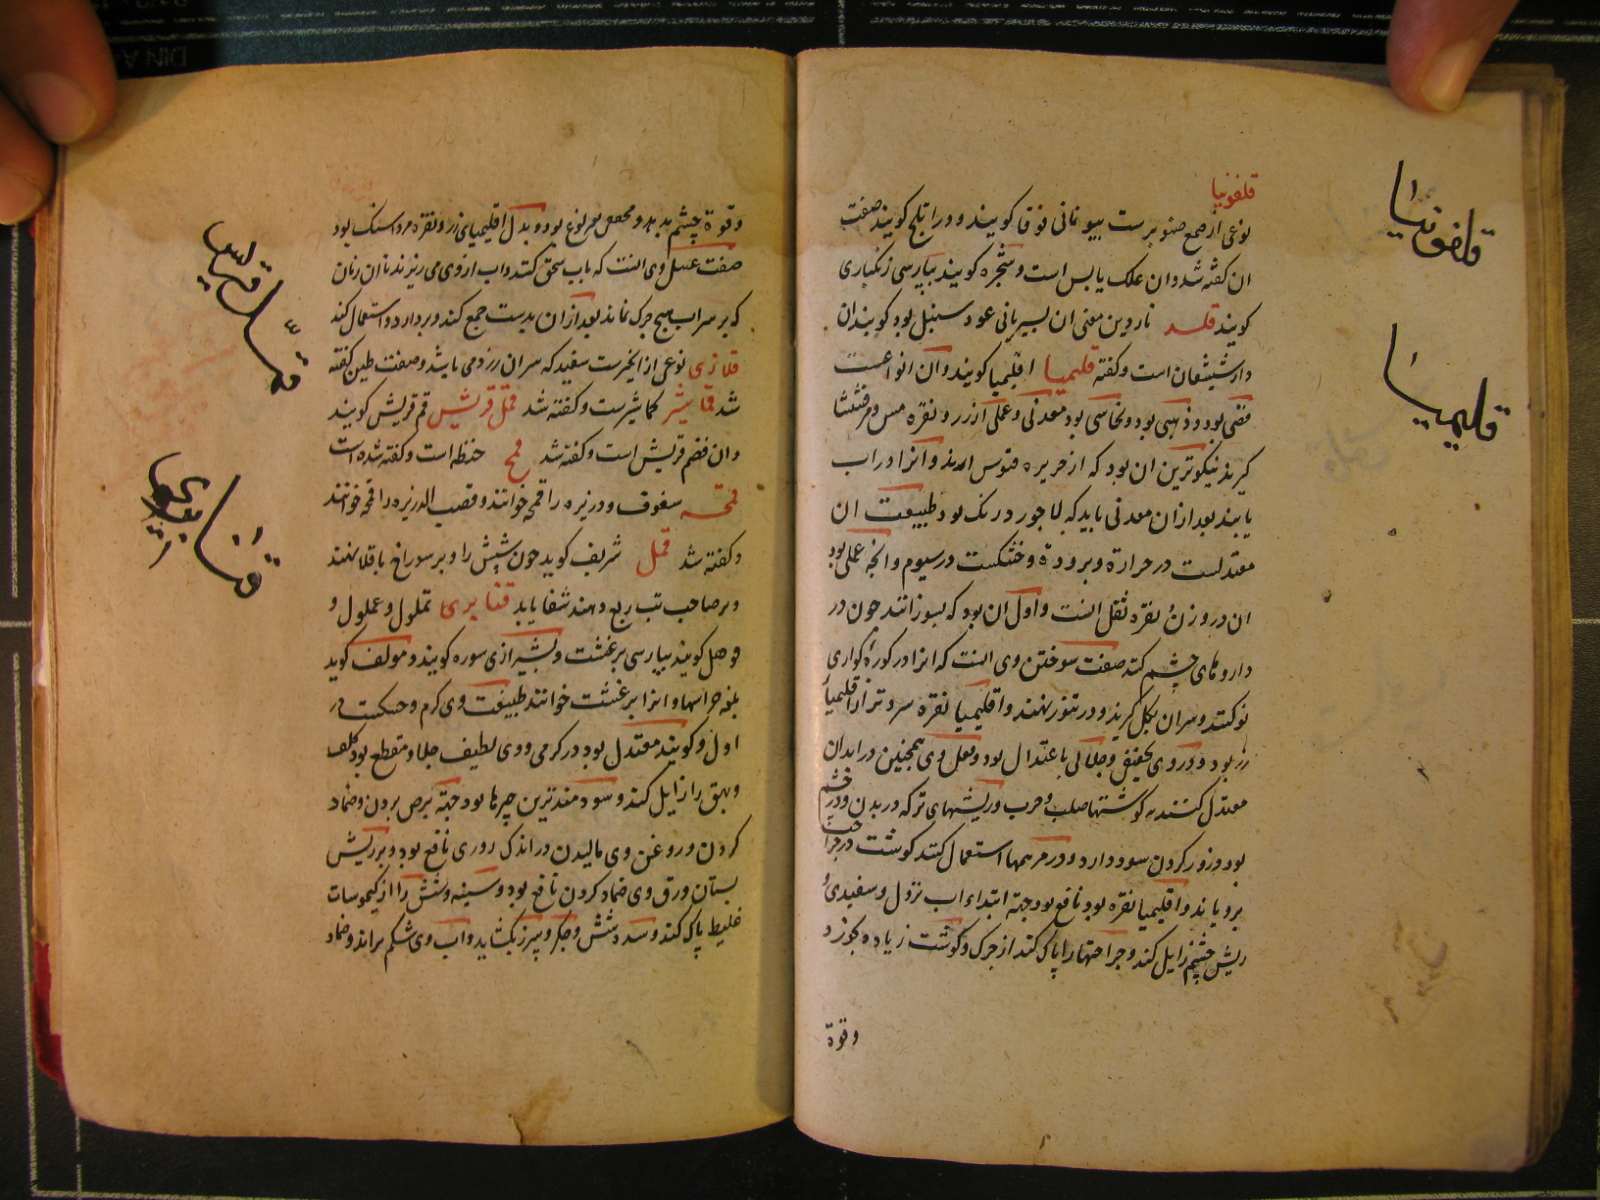 قلفونیا
نوعی از صمغ صنوبرست بیونانی فوفا کویند و درا تلج کویند صفت
ان کفته شد وان علک یابس است و شجره کویند بپارسی زنکباری
کویند قلسد ناردین معنی ان بسریانی عود سنبل بود کویند ان
دارشیشعان است و کفته قلیمیا اقلیمیا کویند وان انواعست
فضی بود و ذهبی بود و نحاسی بود معدنی و عملی از زر و نقره مس و مرقشیشا
کیرند نیکوترین ان بود که از جزیره قبرس اورند وانرا در اب
یابند بعد ازان معدنی باید که لاجورد رنک بود طبیعت ان
معتدلست در حرارة و برودة و خشکست در سیوم وانچه عملی بود
ان در وزن نقره ثقل النت و اول ان بود که بسوزانند چون در
داروهای چشم کنند صفت سوختن وی النت که انرا در کوزۀ کواری
نو کنند و سران بکل کیرند و در تنور نهند و اقلیمیا نقره سردتر از اقلیمیا
زر بود و در وی تجفیف و جلائی باعتدال بود و فعل وی همچنین در ابدان
معتدل کننده کوشتها صلب و جرب و ریشهای تر که در بدن و در چشم
بود و زور کردن سود دارد و در مرهمها استعمال کنند کوشت در جراحت
برویاند و اقلیمیا نقره بود نافع بود جهة ابتداء اب نزول و سفیدی و
ریش چشم زایل کند و جراحتها را پاک کند از چرک و کوشت زیاده بخورد
وقوة
قلفونیا
قلیمیا
وقوة چشم بدهد و مجفف هر نوع بود و بدل اقلیمیای زر و نقره مرداسنک بود
صفت غسل وی النت که باب سحق کنند و اب از وی می ریزند تا ان زمان
که بر سر اب هیچ چرک نماند بعد ازان بدست جمع کند و بردارد و استعمال کند
قلازی نوعی از انجیرست سفید که سران زردمی باشد و صفت طین کفته
شد قماشیر کماشیرست و کفته شد قمل قریش قم قریش کویند
وان فضم قریش است و کفته شد قمح حنطه است و کفته شده است
قمحه سفوف و در زیره را قمحه خوانند و قصب الدریره را قمحه خوانند
و کفته شد قمل شریف کوید چون شپش را و بر سوراخ باقلا نهند
و بر صاحب تب ربع دهند شفا یابد قنابری تملول و عملول و
کویند بپارسی برغشت و بشیرازی سوره کویند و مولف کوید
بلغه خراسها و انرا برغشت خوانند طبیعت وی کرم و خشکست در
اول و کویند معتدل بود در کرمی و وی لطیف جلا و مقطع بود کلف
و بهق را زایل کند و سودمندترین چیزها بود جهة برص بردن و ضماد
کردن و روغن وی مالیدن در اندک روزی نافع بود و بر ریش
بستان ورق وی ضماد کردن نافع بود و سینه و شش را از کیموسات
غلیظ پاک کند و سده شش و جکر و سپرز بکشاید و اب وی شکم براند و ضماد
قمل قریش
قنابری